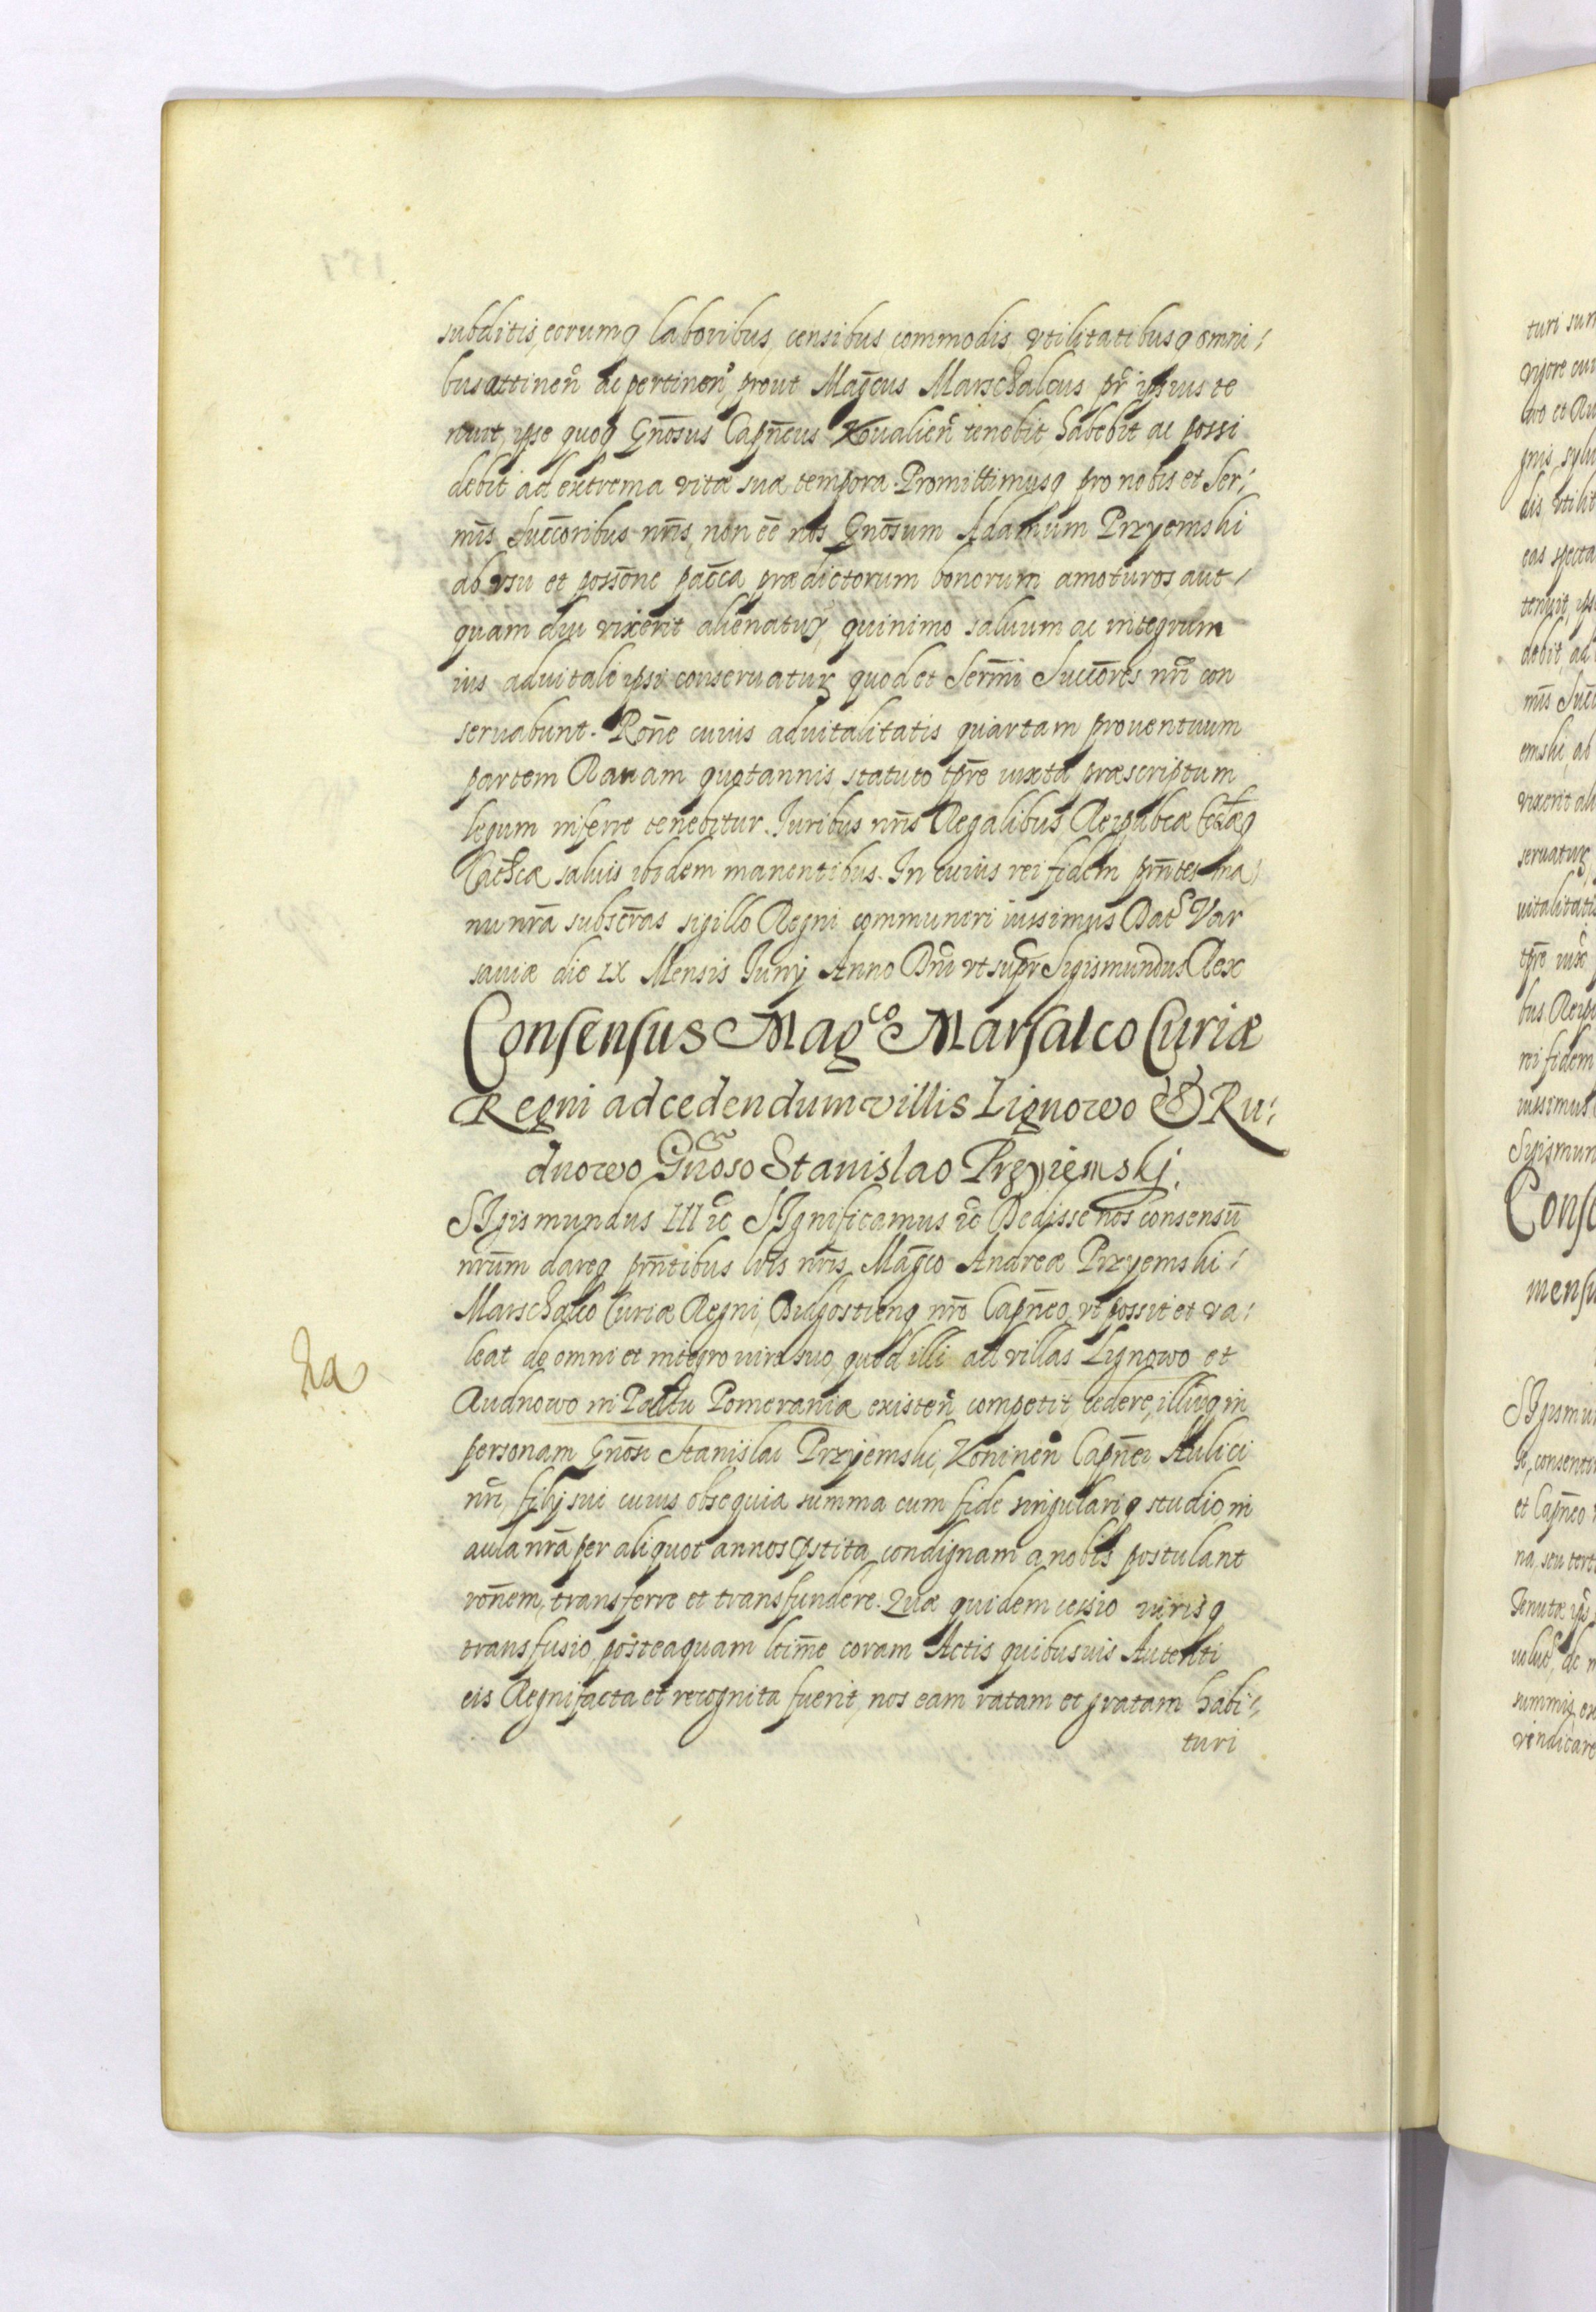 subditis, eorumq laboribus, censibus, commodis, vtilitatibusq omni:
bus attinen̄ ac pertinen̄, prout Mag̃cus Marschalcus pr̃ ipsius te
nuit, ipse quoq Gn̄osus Capn̄eus Koualien̄ tenebit, habebit ac possi
debit ad extrema vitæ suæ tempora. Promittimusq pro nobis et Ser:
mis Succ̄oribus nr̄is, non eē nos Gn̄osum Adamum Przyemski
ab vsu et poss̄one pac̄ca prædictorum bonorum amoturos aut
quam diu vixerit alienatur, quinimo saluum ac integrum
ius aduitale ipsi conseruatur, quod et Ser̄mi Succ̄ores nr̄i con
seruabunt. Ron̄e cuius aduitalitatis quartam prouentuum
partem Rauam quotannis statuto tp̄re iuxta præscriptum
legum inferre tenebitur. Iuribus nr̄is Regalibus, Reipubcæ
saluis ibidem manentibus. In cuius rei fidem pn̄tes ma:
nu nr̄a subscr̄as sigillo Regni communiri iussimus Dat Var
sauiæ die IX Mensis Iunij Anno Dn̄i vt supr Sigismundus Rex
Consensus Magco Marsalco Curiæ
Regni ad cedendum villis Lignowo & Ru:
dnowo Gn̄oso Stanislao Przyiemskj.
SIgismundus III ec̄ SIgnificamus ec̄ Dedisse nos consensū
nr̄um dareq pn̄tibus lr̄is nr̄is, Mag̃co Andreæ Przyemski:
Marschalco Curiæ Regni, Bidgostienq nr̄o Capn̄eo, vt possit et va:
leat de omni et integro iure suo, quod illi ad villas Lignowo et
Rudnowo in Paltu Pomeraniæ existen̄ competit, cedere, illiuq in
personam Gn̄osi Stanislai Przyjemski, Koninen̄ Capn̄ei Aulici
nr̄i, filij sui cuius obsequia summa cum fide singulariq studio, in
aula nr̄a per aliquot annos pstita, condignam a nobis postulant
ron̄em, transferre et transfundere. Quæ quidem cessio iurisq
transfusio, posteaquam ltim̄e coram Actis quibusuis Autenti
cis Regni facta et recognita fuerit, nos eam ratam et gratam habi:
turi
turi sum
wo et Ru
gnis, sylu
dis, vtilit
eas specta
tenuit, ips
debit, ad
mis Succ
emski, ab
vixerit ali
seruatur,
uitalitatis
tp̄re iux
bus Reip
rei fidem
iussimus
Sigismun
Conse
mensu
SIgismu
et Capn̄eo
vendicare